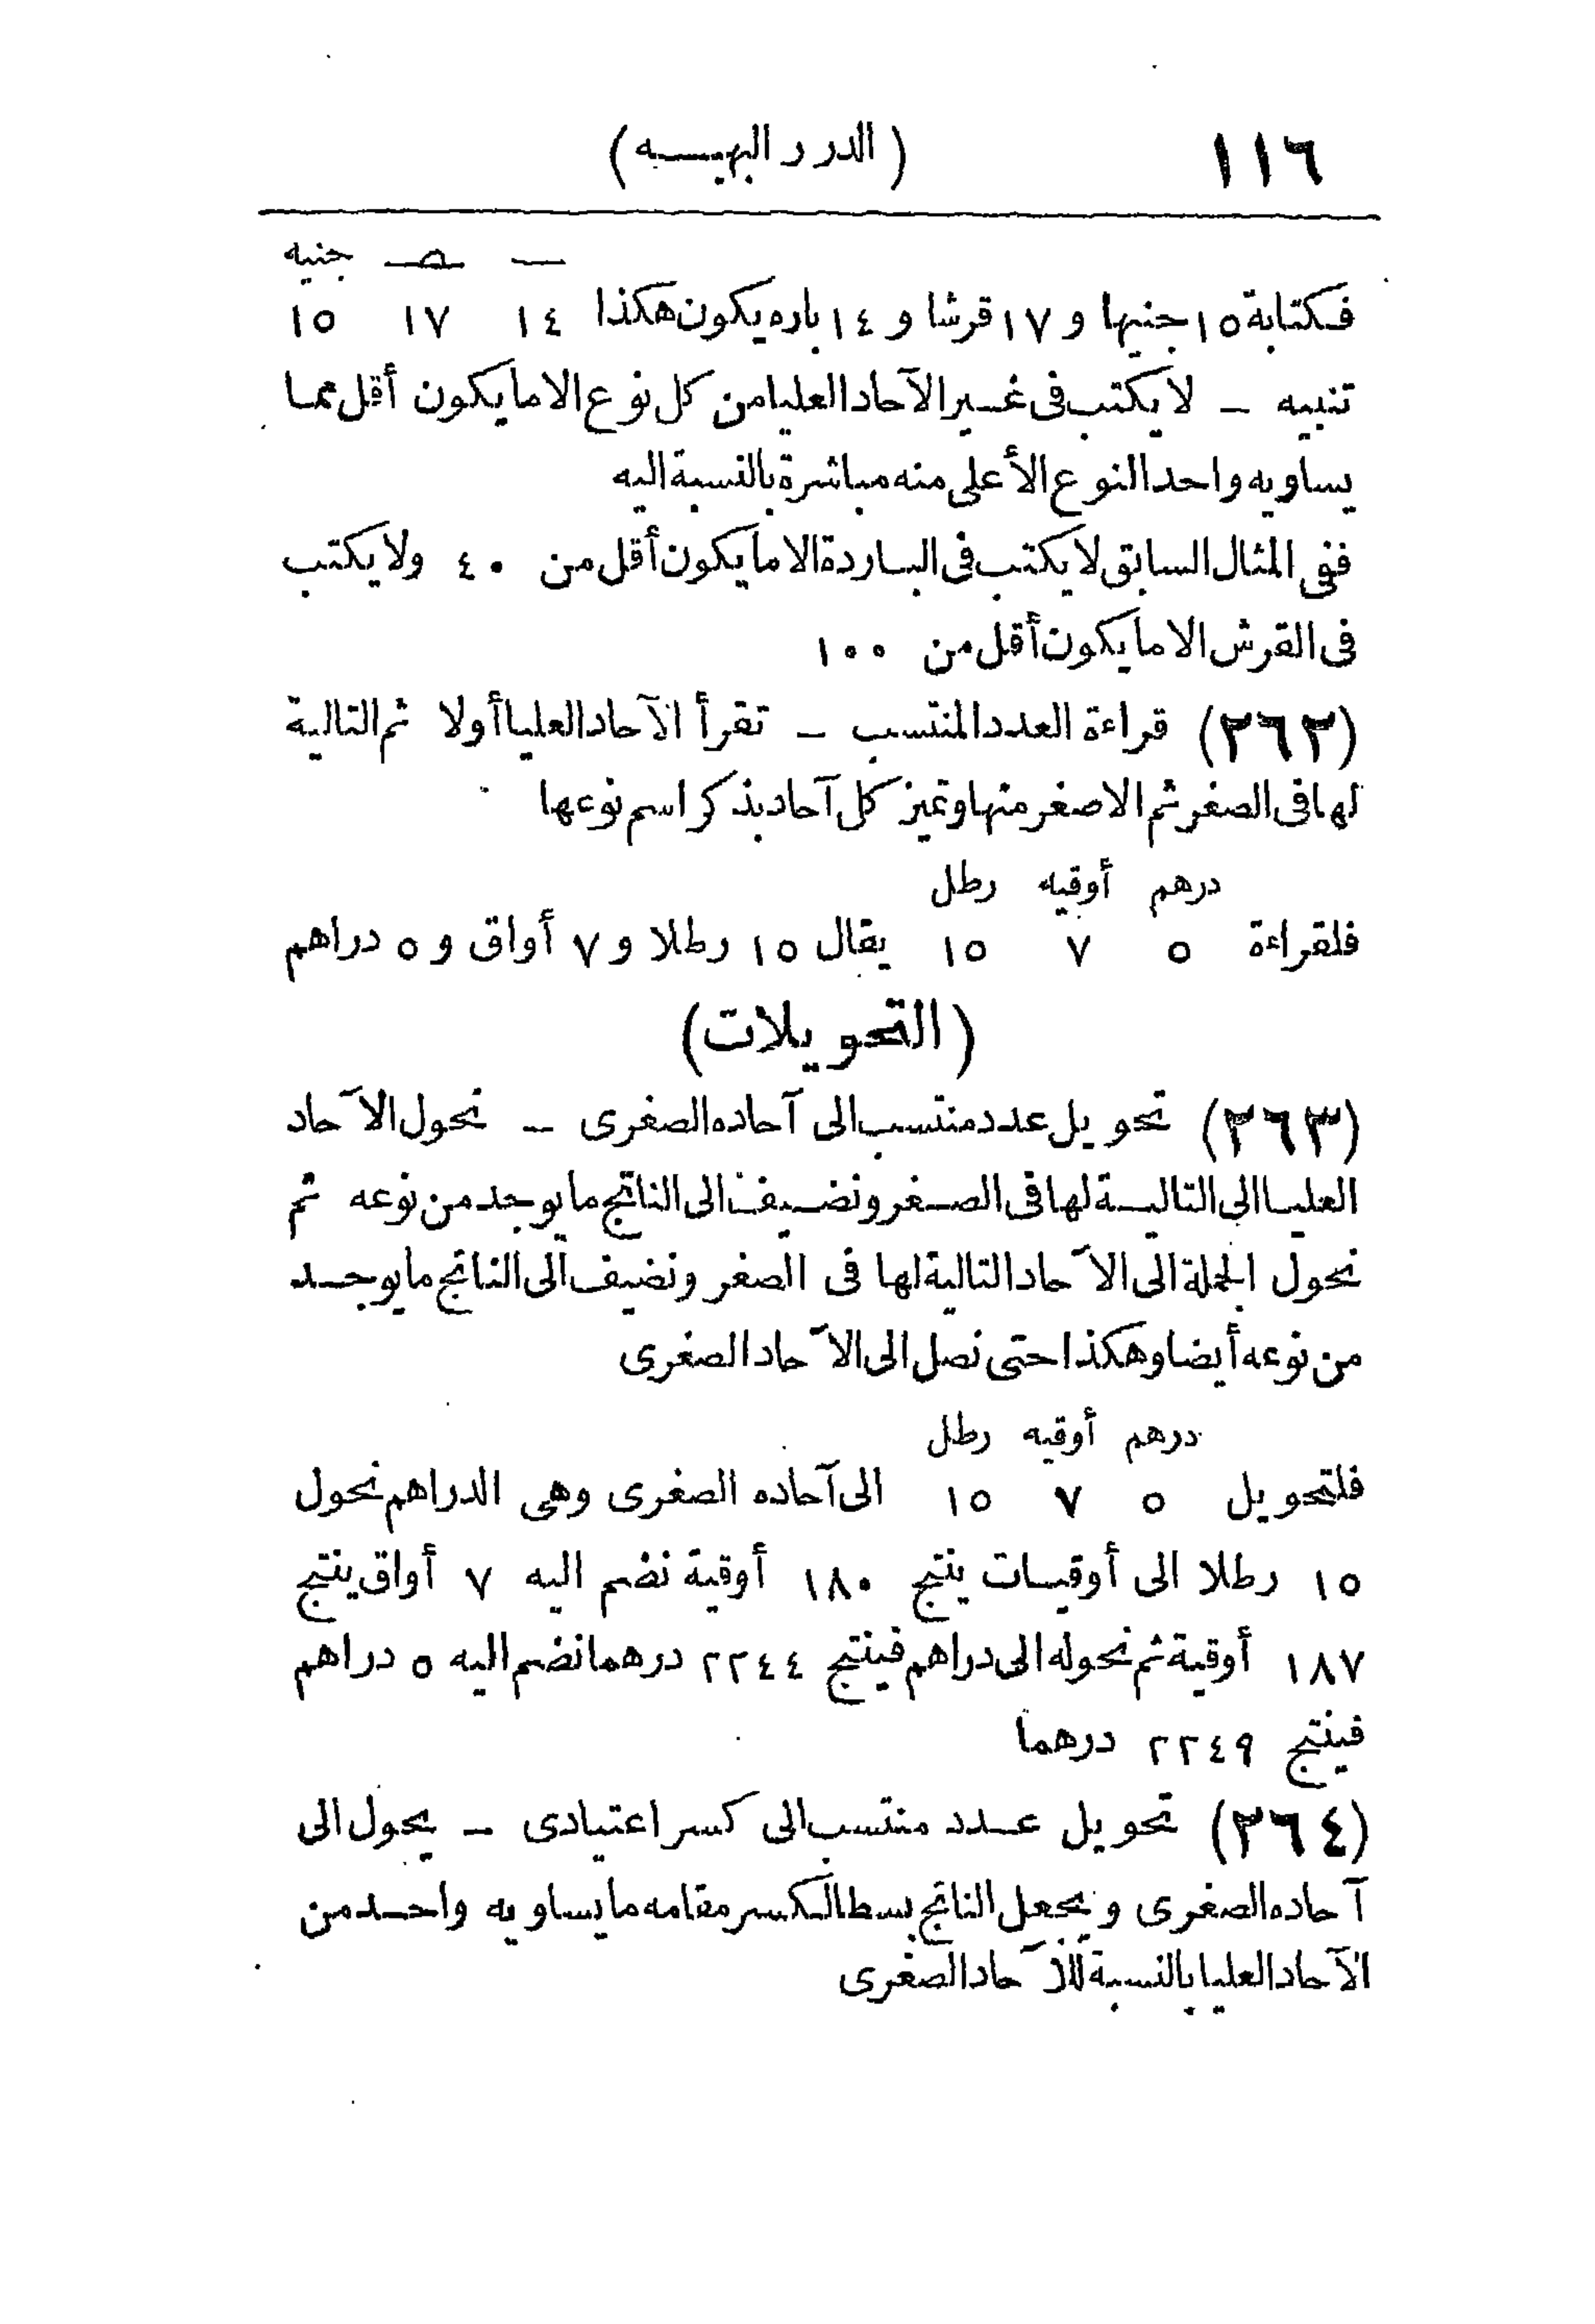 ١١٦ (الدرر البهيـه)
ـــ صـ جنيه
فكتابة ١٥ جنيها و ١٧ قرشا و ١٤ باره يكون هكذا ١٤ ١٧ ١٥
تنبيه — لا يكتب فى غير الآحاد العليا من كل نوع الا ما يكون أقل مما
يساويه واحد النوع الأعلى منه مباشرة بالنسبة اليه
ففى المثال السابق لا يكتب فى الباردة الا ما يكون أقل من ٤٠ ولا يكتب
فى القرش الا ما يكون أقل من ١٠٠
(٢٦٢) قراءة العدد المنتسب — تقرأ الآحاد العليا أولا ثم التالية
لها فى الصغر ثم الاصغر منها وتميز كل آحاد بذكر اسم نوعها
درهم أوقيه رطل
فلقراءة ٥ ٧ ١٥ يقال ١٥ رطلا و ٧ أواق و ٥ دراهم
(التحويلات)
(٢٦٣) تحويل عدد منتسب الى آحاده الصغرى — نحول الآحاد
العليا الى التالية لها فى الصغر ونضيف الى الناتج ما يوجد من نوعه ثم
نحول الجملة الى الآحاد التالية لها فى الصغر ونضيف الى الناتج ما يوجد
من نوعه أيضا وهكذا حتى نصل الى الآحاد الصغرى
درهم أوقيه رطل
فلتحويل ٥ ٧ ١٥ الى آحاده الصغرى وهى الدراهم نحول
١٥ رطلا الى أوقيات ينتج ١٨٠ أوقية نضم اليه ٧ أواق ينتج
١٨٧ أوقية ثم نحوله الى دراهم فينتج ٢٢٤٤ درهما نضم اليه ٥ دراهم
فينتج ٢٢٤٩ درهما
(٢٦٤) تحويل عدد منتسب الى كسر اعتيادى — يحول الى
آحاده الصغرى ويجعل الناتج بسطا لكسر مقامه ما يساويه واحد من
الآحاد العليا بالنسبة للآحاد الصغرى